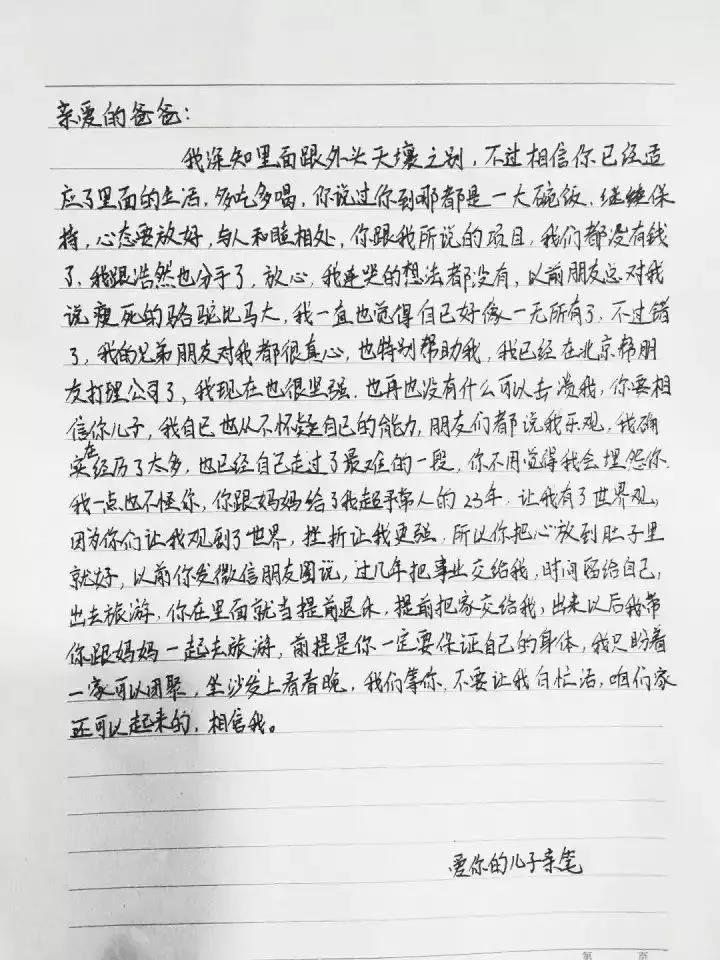 亲爱的爸爸:
我深知里面跟外头天壤之别,不过相信你已经适
应了里面的生活,多吃多喝,你说过你到哪都是一大碗饭,继续保
持,心态要放好,与人和睦相处,你跟我所说的项目,我们都没有钱
了,我跟浩然也分手了,放心,我连哭的想法都没有,以前朋友总对我
说瘦死的骆驼比马大,我一直也觉得自己好像一无所有了,不过错
了,我的兄弟朋友对我都很真心,也特别帮助我,我已经在北京帮朋
友打理公司了,我现在也很坚强,也再也没有什么可以击溃我,你要相
信你儿子,我自己也从不怀疑自己的能力,朋友们都说我乐观,我确
实在经历了太多,也已经自己走过了最难的一段,你不用觉得我会埋怨你
我一点也不怪你,你跟妈妈给了我超乎常人的23年,让我有了世界观,
因为你们让我观到了世界,挫折让我更强,所以你把心放到肚子里
就好,以前你发微信朋友圈说,过几年把事业交给我,时间留给自己,
出去旅游,你在里面就当提前退休,提前把家交给我,出来以后我带
你跟妈妈一起去旅游,前提是你一定要保证自己的身体,我只盼着
一家可以团聚,坐沙发上看春晚,我们等你,不要让我白忙活,咱们家
还可以起来的,相信我。
爱你的儿子亲笔
第 页